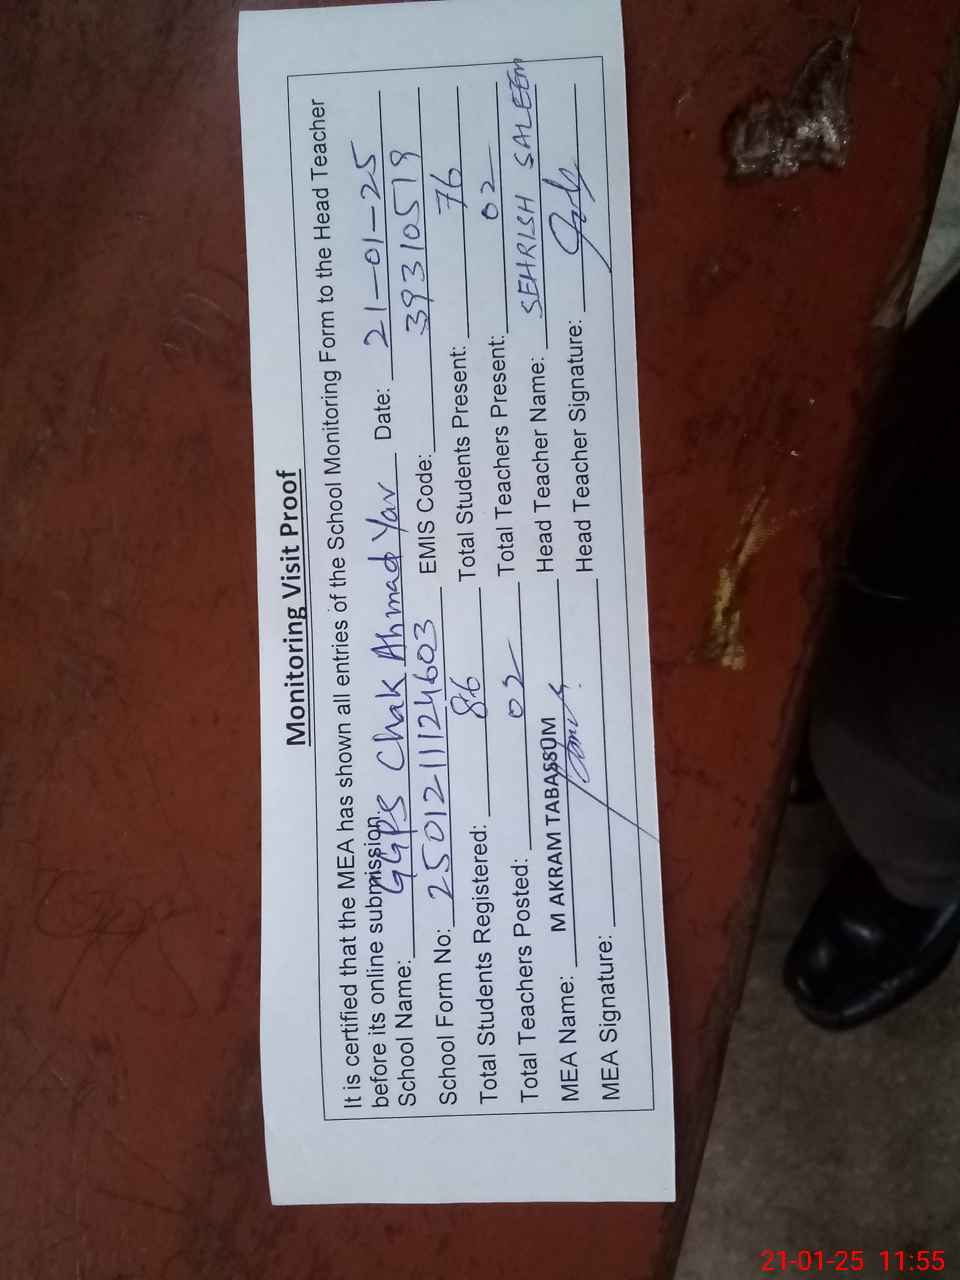 Monitoring Visit Proof
It is certified that the MEA has shown all entries of the School Monitoring Form to the Head Teacher
before its online submission.
School Name: GGPS Chak Ahmad Yar Date: 21-01-25
School Form No: 2501211124603 EMIS Code: 39310519
Total Students Registered: 86 Total Students Present: 76
Total Teachers Posted: 02 Total Teachers Present: 02
MEA Name: M AKRAM TABASSUM Head Teacher Name: SEHRISH SALEEM
MEA Signature: Head Teacher Signature:
21-01-25 11:55